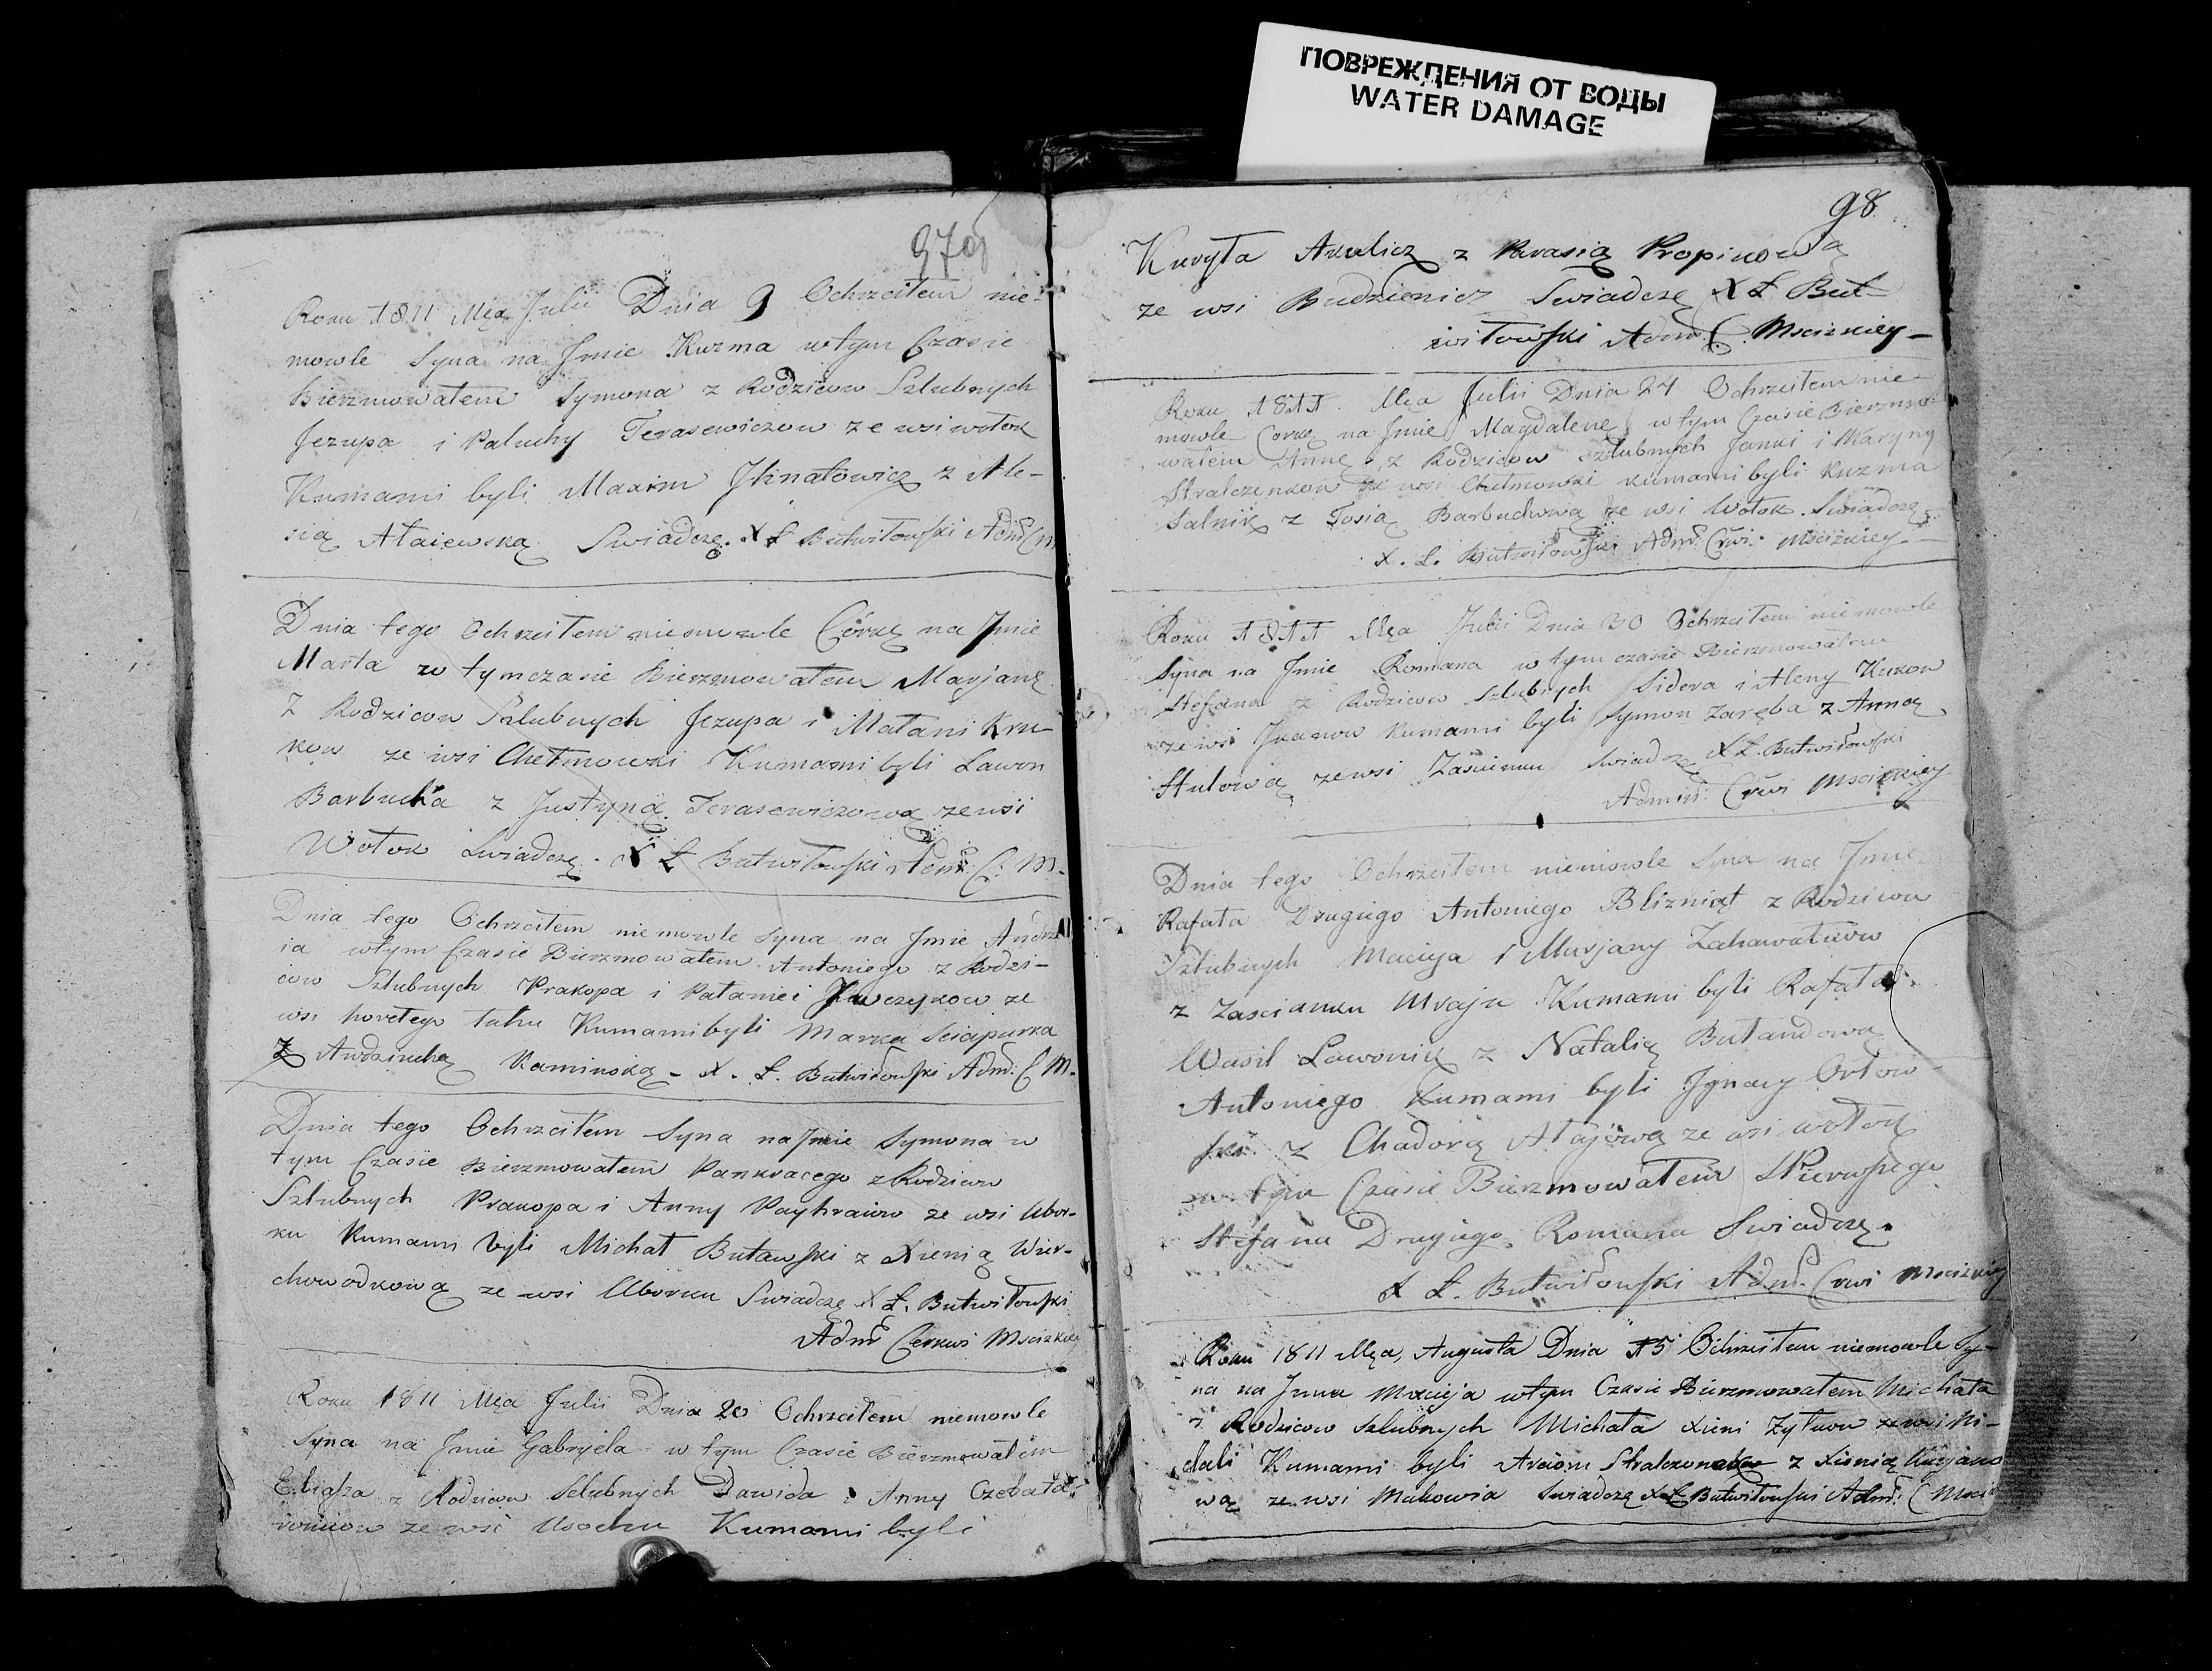 ПОВРЕЖДЕНИЯ ОТ ВОДЫ
WATER DAMAGE
Roku 1811 Mca Julii Dnia 9 Ochrzciłem nie-
mowle Syna na Jmie Kuzma wtym Czasie
Bierzmowałem Symona z Rodzicow Szlubnych
Jezupa i Paluchy Terasewiczow ze wsi wołok
Kumami byli Maxim Jhnatowicz z Ale-
sią Ałaiewską Swiadczę. X Ł Butwiłowski Adm C M
Dnia tego Ochrzciłem niemowle Córkę na Jmie
Marta w tymczasie Bierzmowałem Marjanę
Z Rodzicow Szlubnych Jezupa i Matani Kru-
kow ze wsi Chełmowki Kumami byli Lawon
Barbucha z Justyną Terasewiczową ze wsi
Wołok Swiadczę. X Ł Butwiłowski Adm: C: M.
Dnia tego Ochrzciłem niemowle Syna na Jmie Andrze
ia wtym Czasie Bierzmowałem Antoniego z Rodzi-
cow Szlubnych Prakopa i Pałaniei ze
wsi horełego Kumami byli Marka Sciapurka
Z Audziuchą Kaminską - X. Ł. Butwiłowski Adm. C M.
Dnia tego Ochrzciłem Syna na Jmie Symona w
tym Czasie Bierzmowałem Pankracego z Rodzicow
Szlubnych Prakopa i Anny ze wsi Ubor-
ku Kumami byli Michał Buławski z Xienią Wier-
chowodkową ze wsi Uborku Swiadczę X Ł. Butwiłowski
Adm Cerkwi Mscizkiey
Roku 1811 Mca Julii Dnia 20 Ochrzciłem niemowle
Syna na Jmie Gabryela w tym Czasie Bierzmowałem
Eliasza z Rodzicow Szlubnych Dawida i Anny
ze wsi Kumami byli
98
Kuryła Akulicz z Parasią Propikową
ze wsi Budzienicz Swiadczę X Ł But-
wiłowski Adm. C. Mscizkiey -
Roku 1811. Mca Julii Dnia 24 Ochrzciłem nie-
mowle Corkę na Jmie Magdalenę w tym Czasie Bierzmo-
wałem Annę z Rodzicow Szlubnych Janki i Maryny
Stralczenkow ze wsi Chełmowki kumami byli Kuzma
Salnik z Tosią Barbuchową ze wsi Wołok. Swiadczę
X. Ł. Butwiłowski Adm. Crwi. Mscizkiey -
Roku 1811 Mca Julii Dnia 30 Ochrzciłem niemowle
Syna na Jmie Romana w tym czasie Bierzmowałem
Stefana z Rodzicow Szlubnych Sidora i Aleny Kukow
ze wsi Kumami byli Symon Zaręba z Anną
ze wsi Zascianku Swiadczę X Ł. Butwiłowski
Admin. Crwi Mscizkiey
Dnia tego Ochrzciłem niemowle Syna na Jmie
Rafała Drugiego Antoniego Blizniąt z Rodzicow
Szlubnych Macieja i Marjany
z Zascianku Kumami byli Rafała
Wasil Lawonik z Natalią Buławdową
Antoniego Kumami byli Jgnacy Orłow-
ski z Chadorą Ałajową ze wsi wołok
w tym Czasie Bierzmowałem Pierwszego
Stefana Drugiego Romana Swiadczę.
X Ł. Butwiłowski Adm. Crwi Mscizkiey
Roku 1811 Mca, Augusta Dnia 15 Ochrzciłem niemowle Sy-
na na Jmie Macieja wtym Czasie Bierzmowałem Michała
z Rodzicow Szlubnych Michała Xieni Zyłków ze wsi Ni-
dali Kumami byli Arciom z Xienią
wą ze wsi Makowia Swiadczę X Ł Butwiłowski Adm: C Msci